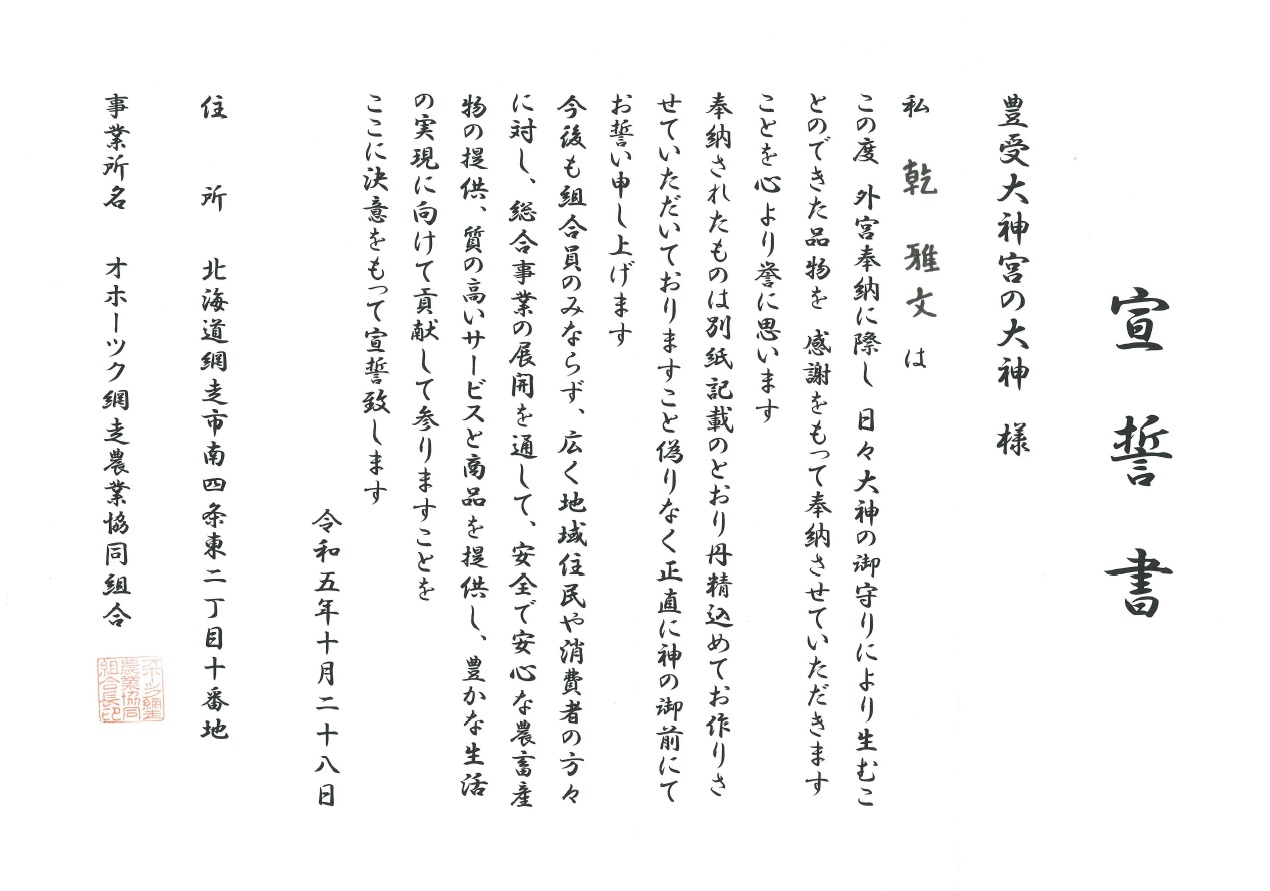 宣誓書
豊受大神宮の大神 様
私 乾 雅文 は
この度 外宮奉納に際し 日々大神の御守りにより生むこ
とのできた品物を 感謝をもって奉納させていただきます
ことを心より誉に思います
奉納されたものは別紙記載のとおり丹精込めてお作りさ
せていただいておりますこと偽りなく正直に神の御前にて
お誓い申し上げます
今後も組合員のみならず、広く地域住民や消費者の方々
に対し、総合事業の展開を通して、安全で安心な農畜産
物の提供、質の高いサービスと商品を提供し、豊かな生活
の実現に向けて貢献して参りますことを
ここに決意をもって宣誓致します
令和五年十月二十八日
住所 北海道網走市南四条東二丁目十番地
事業所名 オホーツク網走農業協同組合
農業協同
組合長印